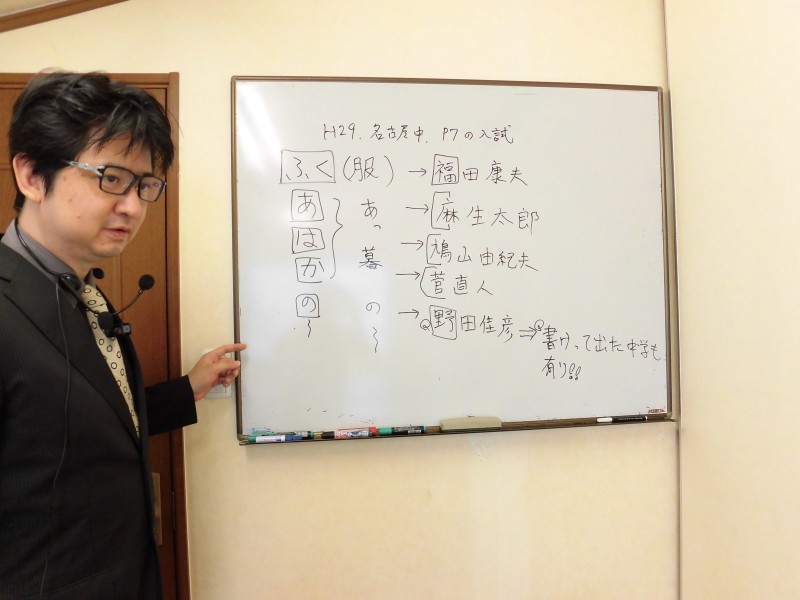 H29. 名古屋中. P7の入試
ふく (服) → 福田康夫
あ あっ → 麻生太郎
は → 鳩山由紀夫
か 墓 → 菅直人
の の〜 → 野田佳彦 ⇒ 書けって出た中学も
有り!!